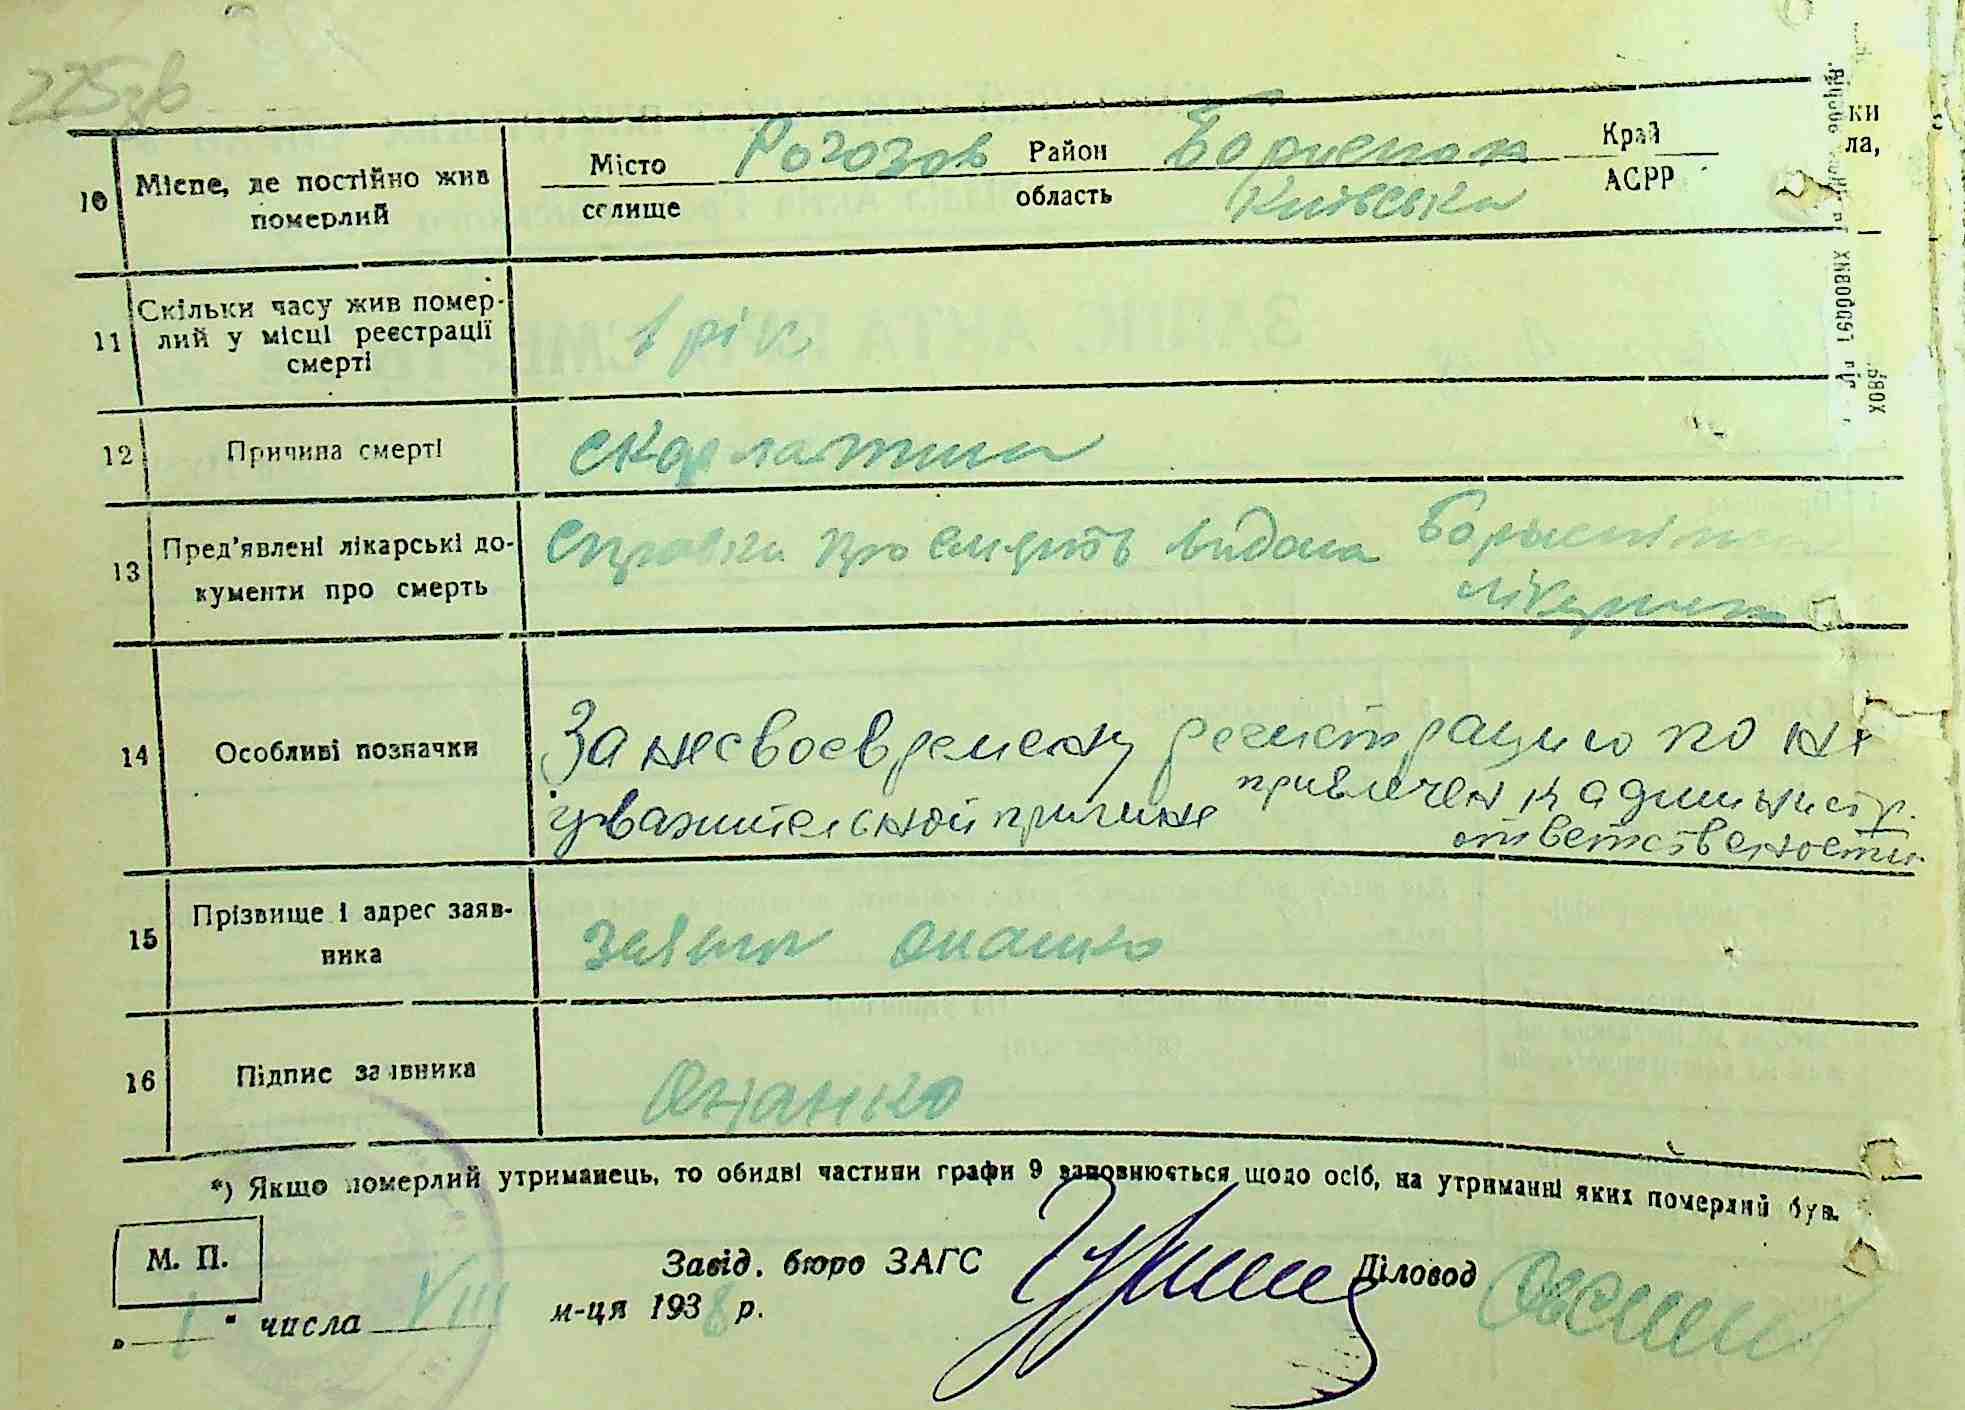 225зв
10 Місце, де постійно жив померлий
Місто селище Рогозов Район область Бориспол Київська Край АСРР
11 Скільки часу жив помер-
лий у місці реєстрації
смерті
1 рік
12 Причина смерті скарлатина
13 Пред'явлені лікарські до-
кументи про смерть
справка про смерть видана
14 Особливі позначки
За несвоевремену регистрацию по не
уважительной причине привлечен к администр.
ответствености
15 Прізвище і адрес заяв-
ника
Онашко
16 Підпис заявника
Онанко
*) Якщо померлий утриманець, то обидві частини графи 9 заповнюється щодо осіб, на утриманні яких померлий був.
М. П.
Завід. бюро ЗАГС Діловод
„ 1 " числа VIII м-ця 1938 р.